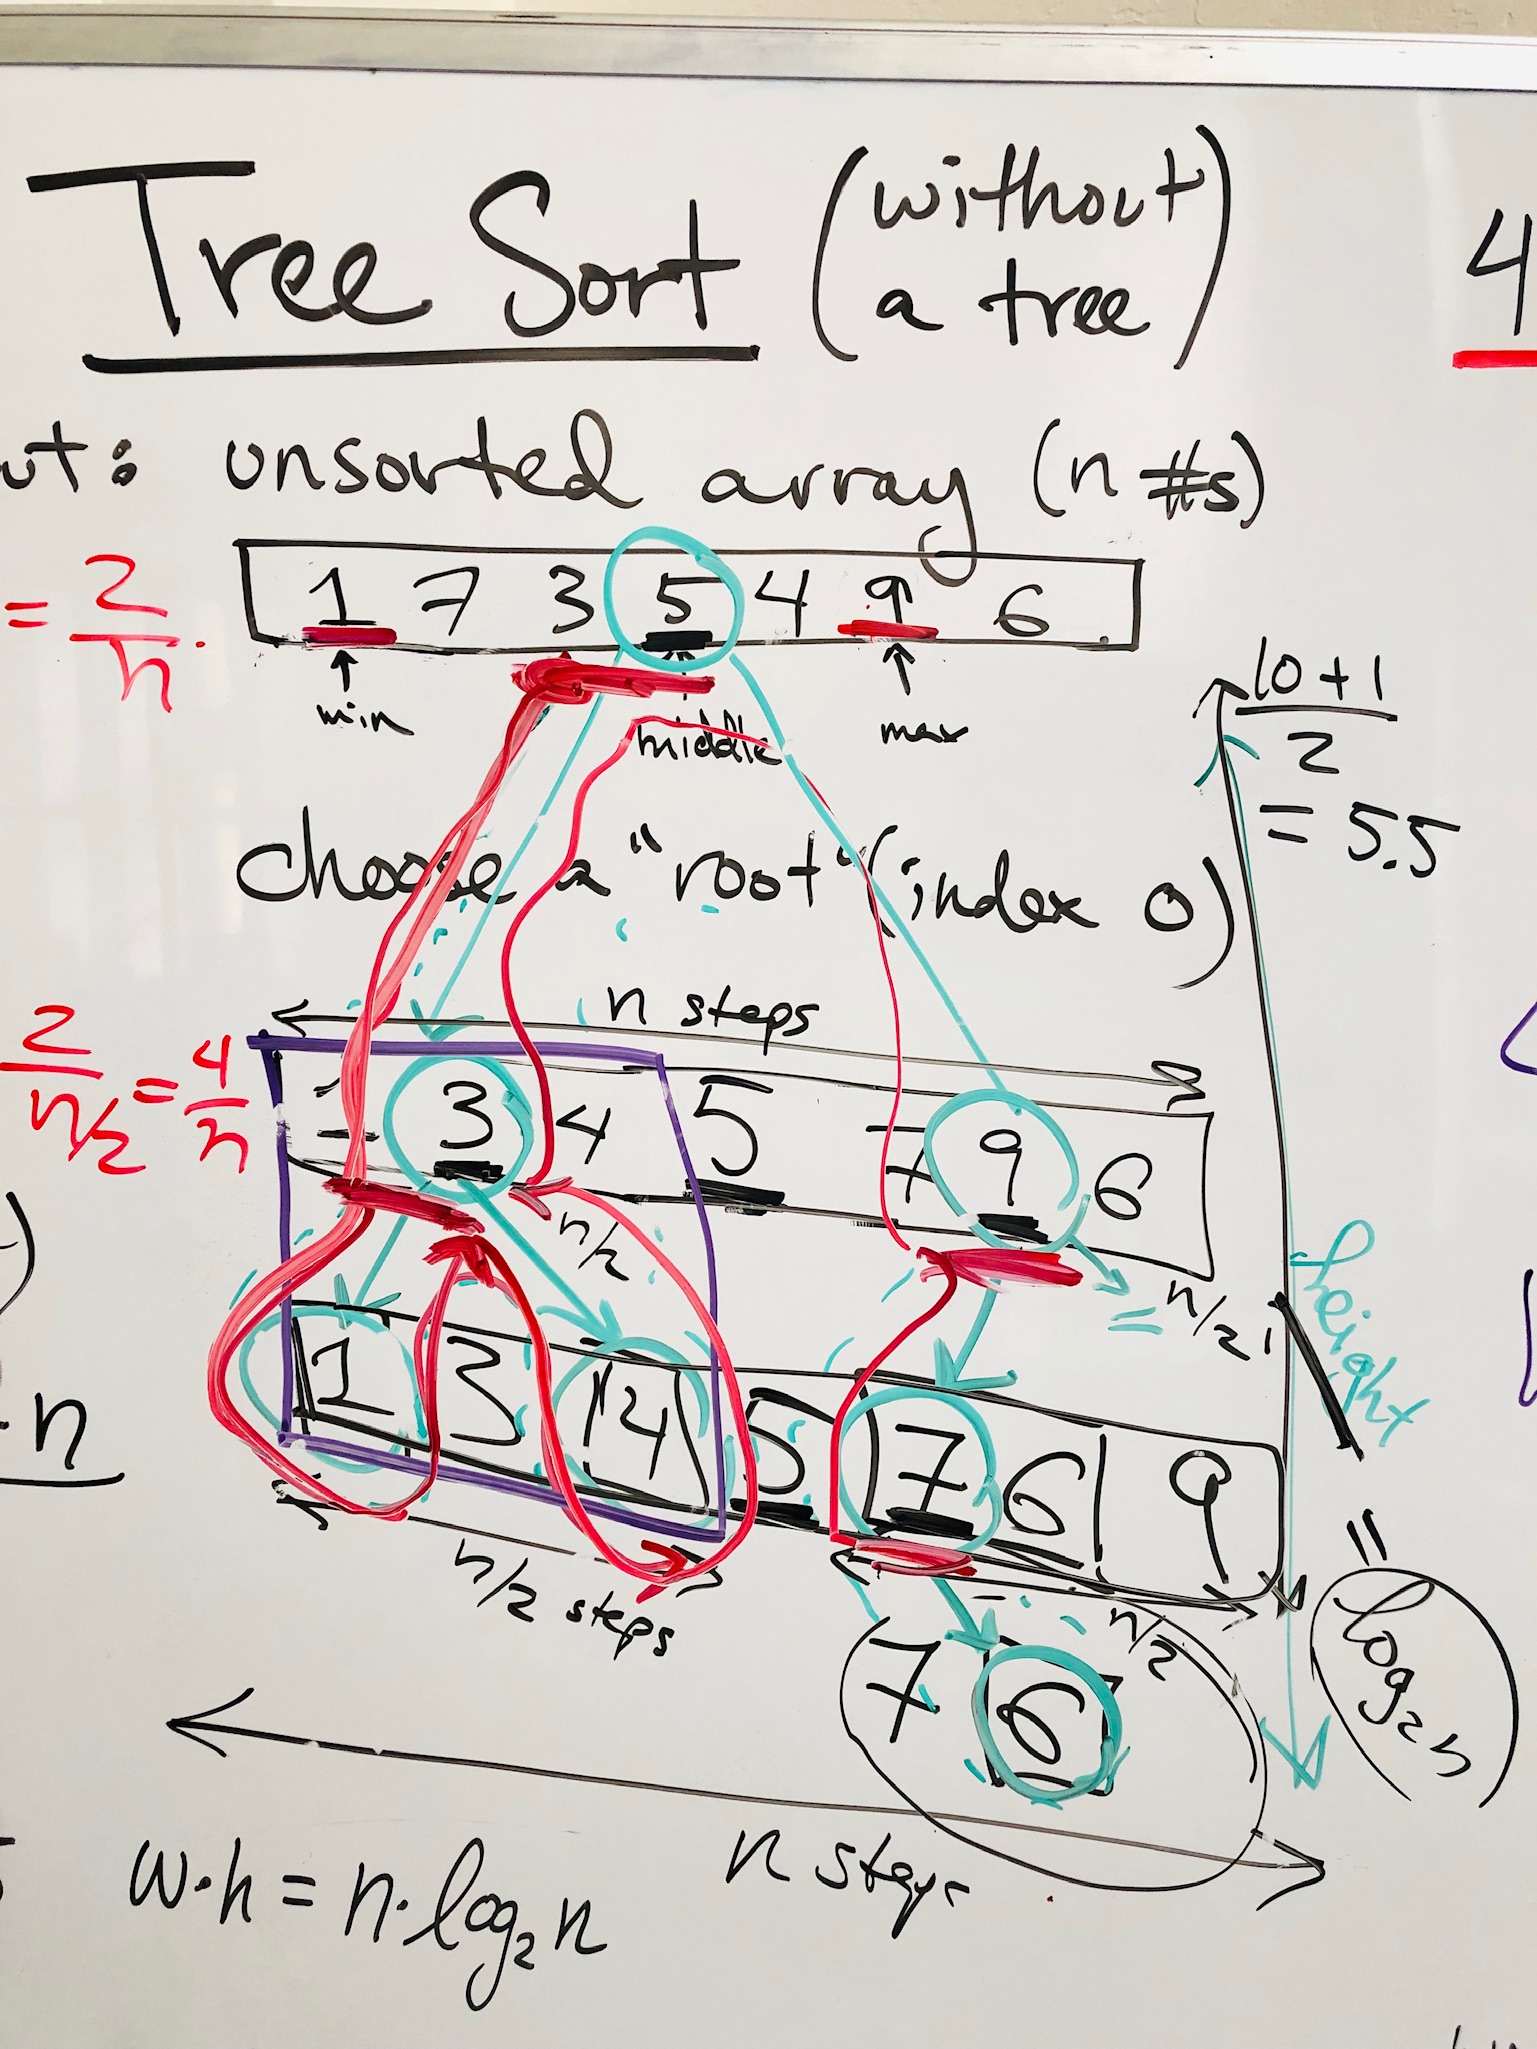 Tree Sort (without
a tree)
4
ut: unsorted array (n #s)
= 2/n
1 7 3 5 4 9 6
min middle max
10+1/2
= 5.5
choose a "root" (index 0)
n steps
2/n/2 = 4/n
1 3 4 5 7 9 6
n/2
= n/2
height
1 3 4 5 7 6 9
n
n/2 steps
n/2
= log₂n
7 6
n steps
w·h = n·log₂n